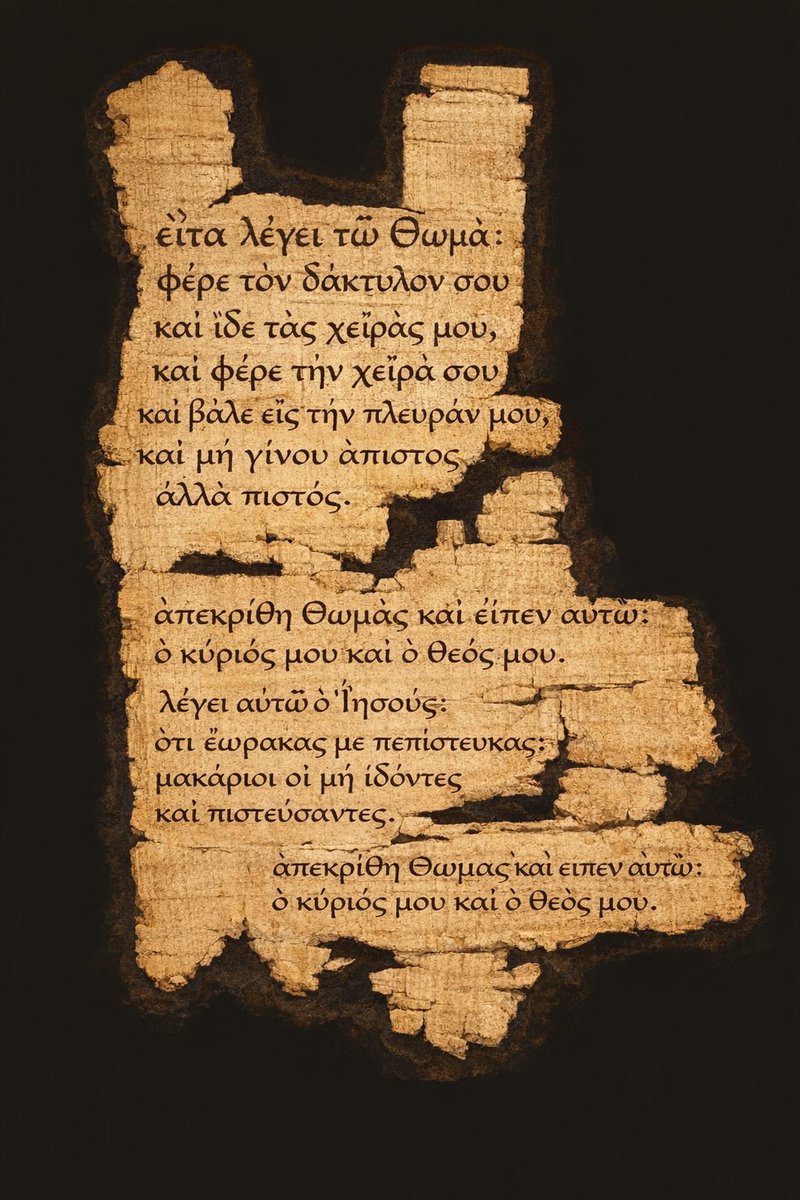 εἲτα λέγει τῶ Θωμὰ:
φέρε τὸν δάκτυλον σου
καί ἴδε τὰς χεῖρὰς μου,
καί φέρε τήν χεῖρὰ σου
καί βὰλε εἰς τήν πλευράν μου,
καί μή γίνου ὰπιστος
άλλὰ πιστός.
ὰπεκρίθη Θωμὰς καί εἰπεν αὐτῶ:
ὸ κύριός μου καί ὸ θεός μου.
λέγει αύτῶ ὸ Ἰησούς:
ὸτι ἔωρακας με πεπίστευκας:
μακάριοι οἱ μή ίδόντες
καί πιστεύσαντες.
ὰπεκρίθη Θωμας καὶ ειπεν αὐτῶ:
ὸ κύριός μου καί ὸ θεὸς μου.